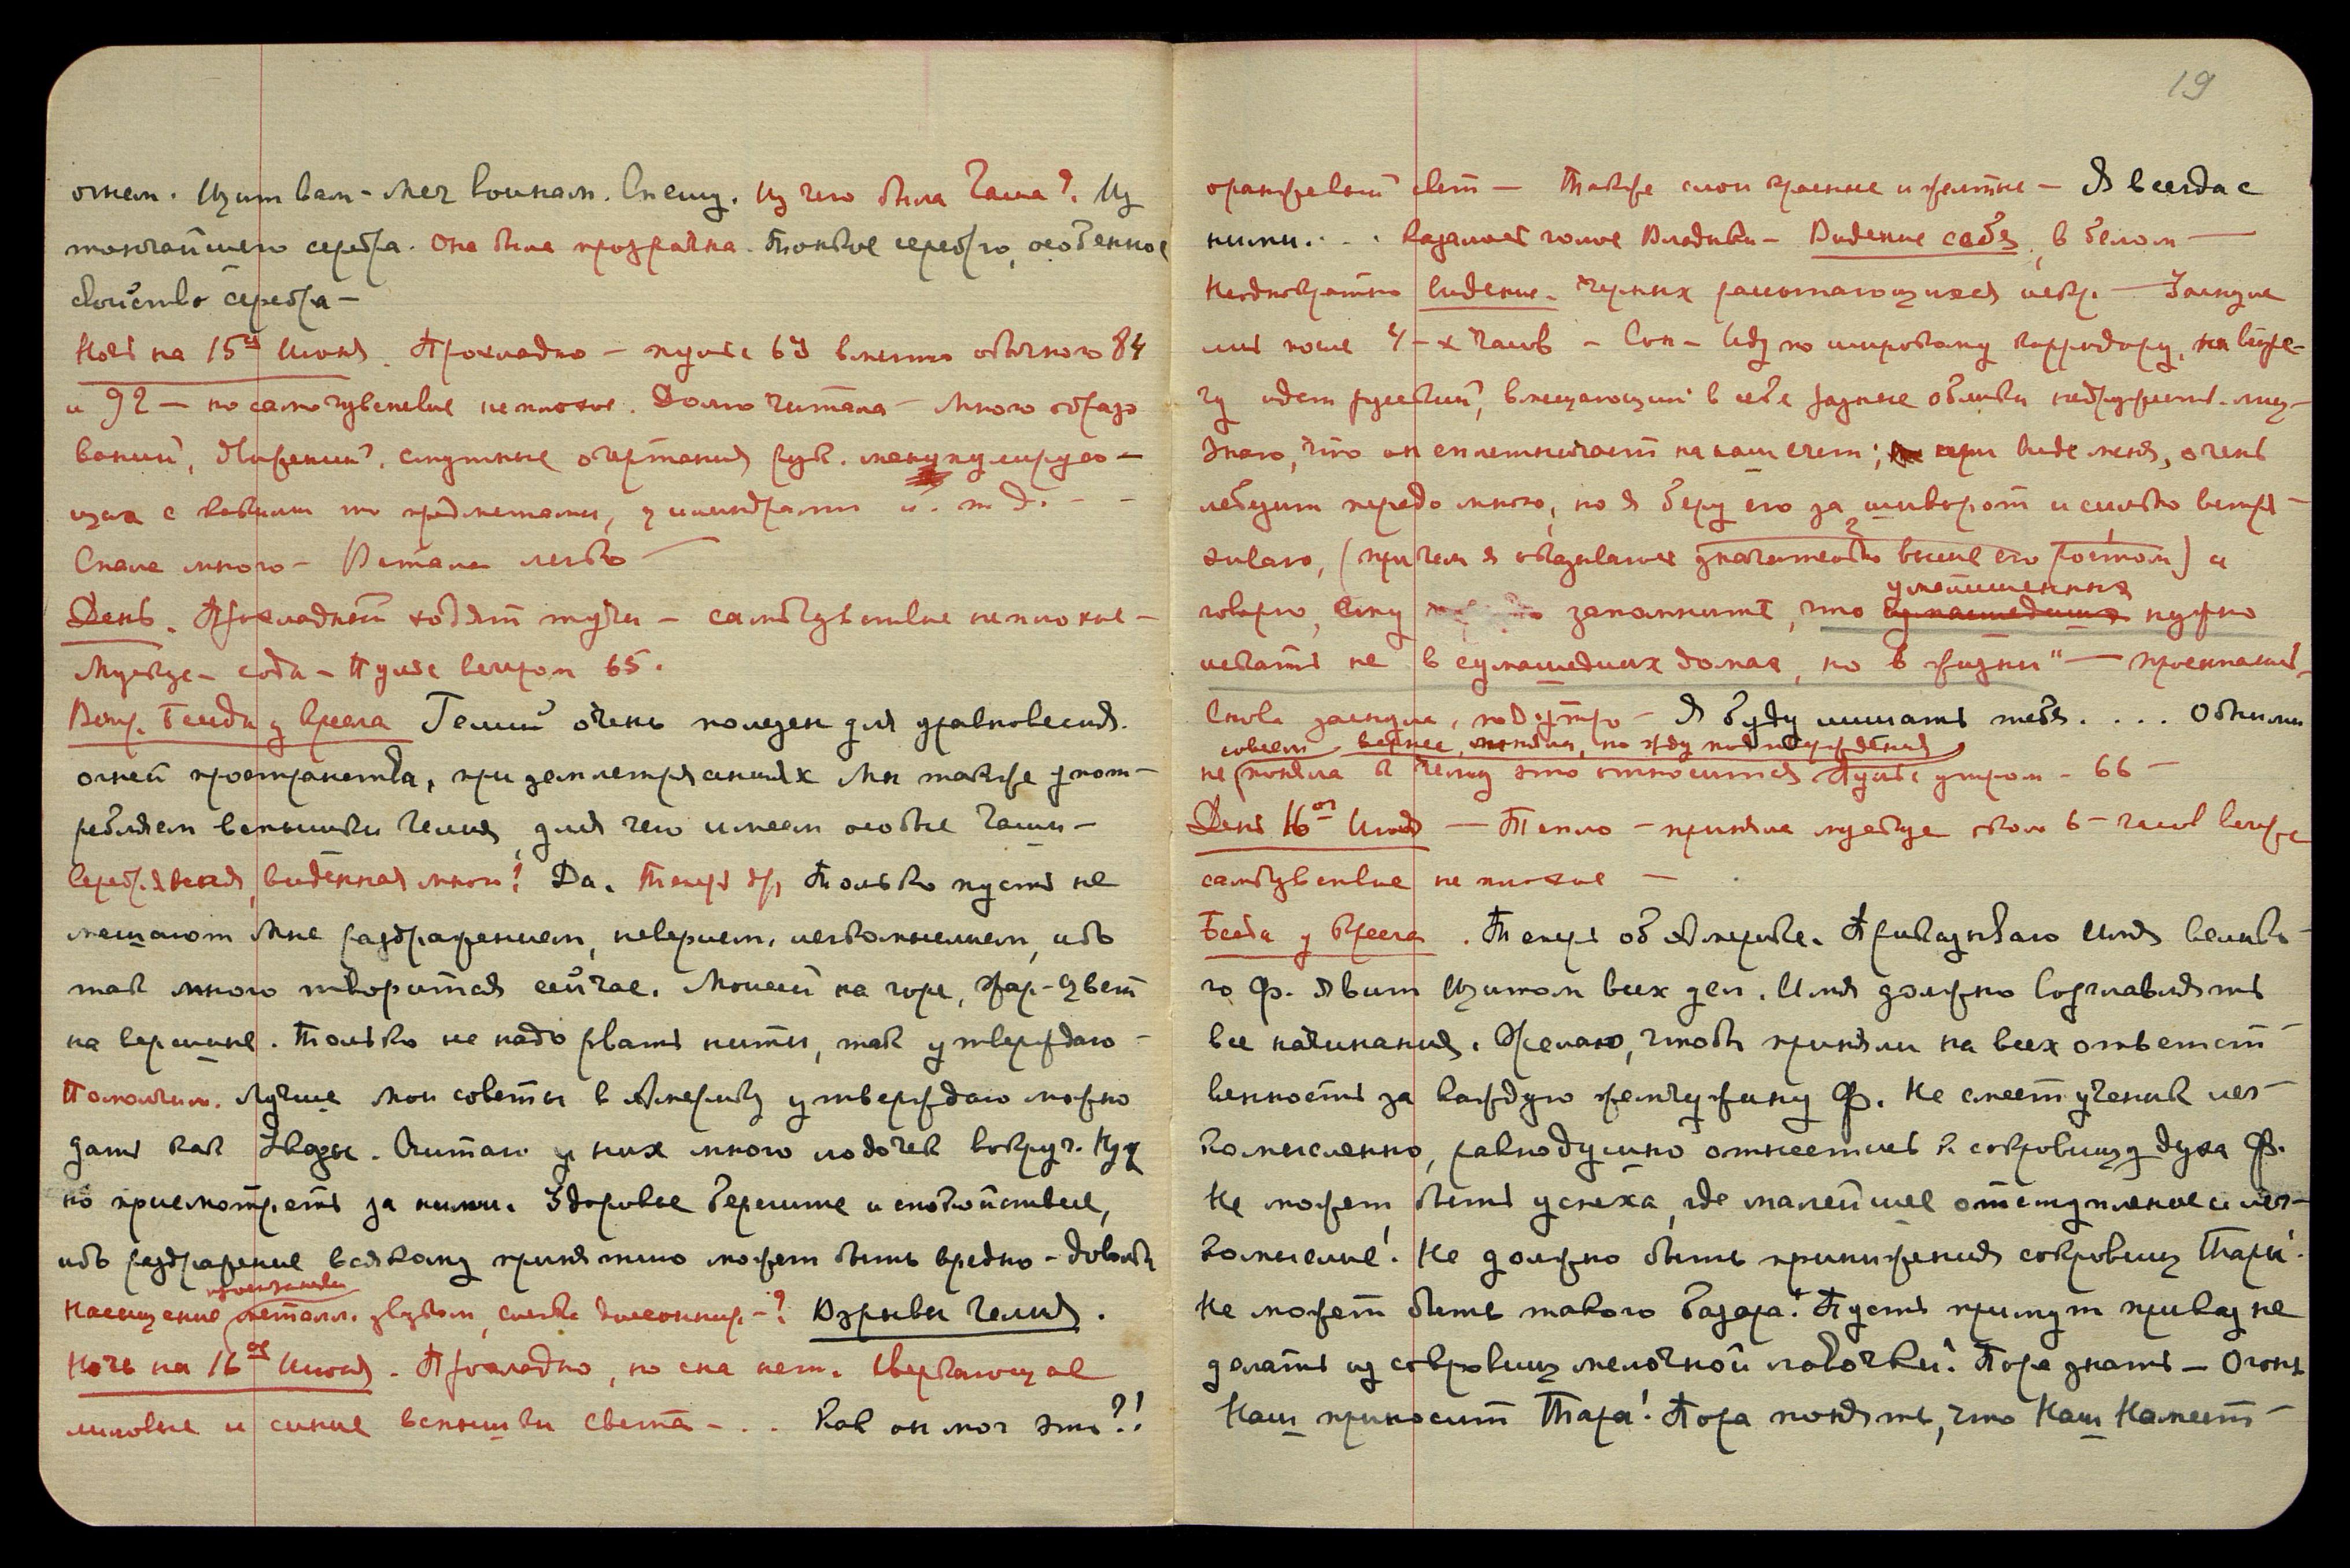 огнем. Щит вам – меч воинам. Спешу. Из чего была Чаша? Из
тончайшего серебра. Она была прозрачна. Тонкое серебро, особенное
свойство серебра –
Ночь на 15ое Июня. Прохладно – пульс 63 вместо обычного 84
и 92 – но самочувствие неплохое. Долго читала – много образо
ваний, движений, смутные очертания рук.
щих с какими то предметами, цилиндрами и т. д. – –
Спала много – Встала легко –
День. Прохладный ходят тучи – самочувствие неплохое –
Мускус – сода – Пульс вечером 65.
Веч. Беседа у кресла Гелий очень полезен для уравновесия.
огней пространства, при землетрясениях Мы также упот–
ребляем вспышки гелия, для чего имеем особые чаши –
Серебряная, виденная мною? Да. Теперь др. Только пусть не
мешают Мне раздражением, неверием, легкомыслием, ибо
так много творится сейчас. Моисей на горе, Жар-Цвет
на вершине. Только не надо рвать нити, так утверждаю –
Помолчим. Лучше мои советы в Америку утверждаю можно
дать как Зовы. Считаю у них много лодочек вокруг. Нуж
но присмотреть за ними. Здоровье берегите и спокойствие,
ибо раздражение всякому принятию может быть вредно – довольно
пространства
Насыщение металл. звуком, –? Взрывы гелия.
Ночь на 16ое Июня. – Прохладно, но сна нет. Сверкающие
лиловые и синие вспышки света – . . Как он мог это?!
19
оранжевый свет – Также слои красные и желтые – Я всегда с
ними. . . . Казалось голос Владыки – Видение себя, в белом –
Неоднократно видение черных разметающихся искр. – Заснула
лишь после 4-х часов – Сон – Иду по широкому корридору, на встре-
чу идет русский, вмещающий в себе разные облики недружеств. лиц –
Знаю, что он сплетничает на наш счет; при виде меня, очень
лебезит передо мною, но я беру его за шиворот и сильно встря –
хиваю, (при чем я оказываюсь значительно выше его ростом) и
2 1
умалишенных
говорю, ему запомните, что сумасшедших нужно
искать не в сумасшедших домах, но в жизни" – проснулась –
Снова заснула, под утро – Я буду лишать тебя. . . . Обними
совсем вернее, поняла, но жду подтверждения
не поняла к чему это относится Пульс утром – 66 –
День 16ое Июня – Тепло – приняла мускус около 6-часов вечера
самочувствие не плохое –
Беседа у Кресла. Теперь об Америке. Приказываю Имя велико-
го Ф. явить щитом всех дел. Имя должно возглавлять
все начинания. Желаю, чтобы приняли на всех ответст
венность за каждую жемчужину Ф. Не смеет ученик лег–
комысленно, равнодушно отнестись к сокровищу духа Ф.
Не может быть успеха, где малейшее отступление и лег–
комыслие! Не должно быть принижения сокровищ Тары!
Не может быть такого базара! Пусть примут приказ не
делать из сокровищ мелочной лавочки! Пора знать – Огонь
Наш приносит Тара! Пора понять, что Наш Намест–